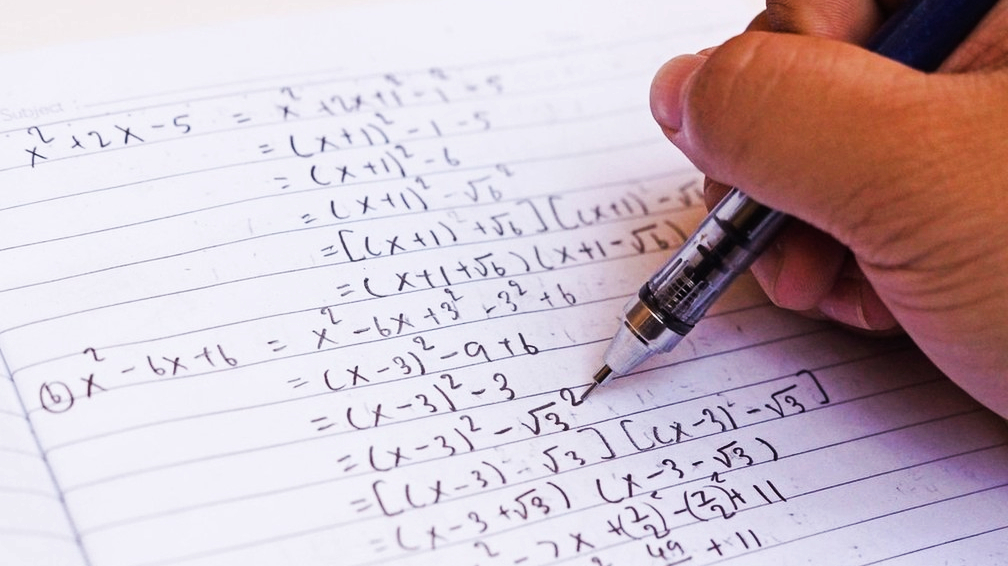 Subject :
x² + 2x - 5 = x² + 2x + 1² - 1² - 5
= (x+1)² - 1 - 5
= (x+1)² - 6
= (x+1)² - √6²
= [(x+1) + √6] [(x+1) - √6
= (x+1+√6) (x+1-√6)
(b) x² - 6x + 6 = x² - 6x + 3² - 3² + 6
= (x-3)² - 9 + 6
= (x-3)² - 3
= (x-3)² - √3²
= [(x-3) - √3] [(x-3) - √3]
= (x-3+√3) (x-3-√3)
² - 7x + (7/2)² - (7/2)² + 11
49 + 11